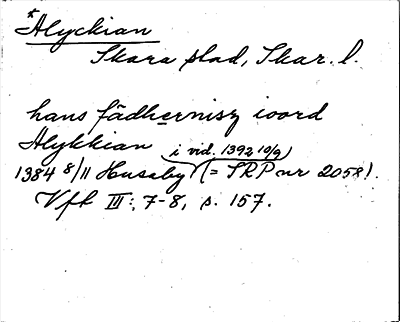 *Alyckian
Skara stad, Skar. l.
hans fädhernisz ioord
Alykkian (i vid. 1392 10/9)
1384 8/11 Husaby (= SRP nr 2058).
Vfk III: 7-8, s. 157.